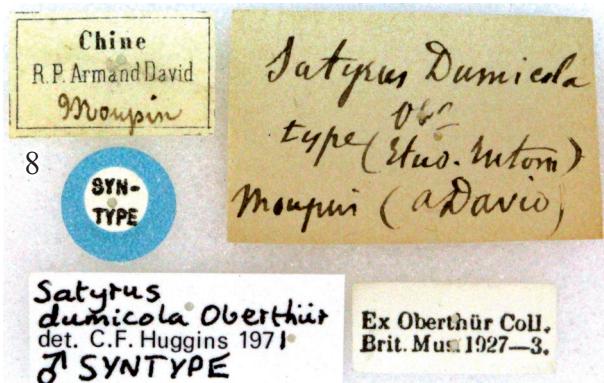 Chine
R. P. Armand David
Moupin
Satyrus Dumicola
Obr
type (Etud. Entom)
Moupin (a David)
8
SYN-
TYPE
Satyrus
dumicola Oberthür
det. C.F. Huggins 1971
♂ SYNTYPE
Ex Oberthür Coll.
Brit. Mus. 1927—3.